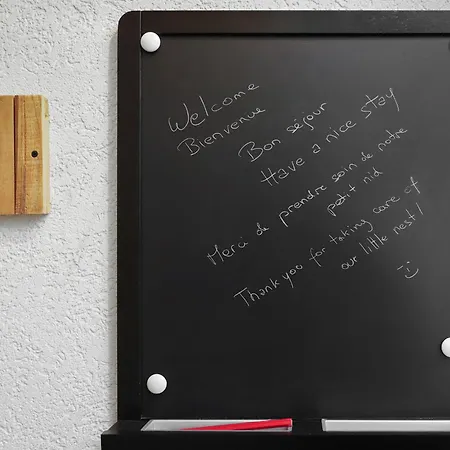 Welcome
Bienvenue
Bon séjour
Have a nice stay
Merci de prendre soin de notre
petit nid
Thank you for taking care of
our little nest!
:)